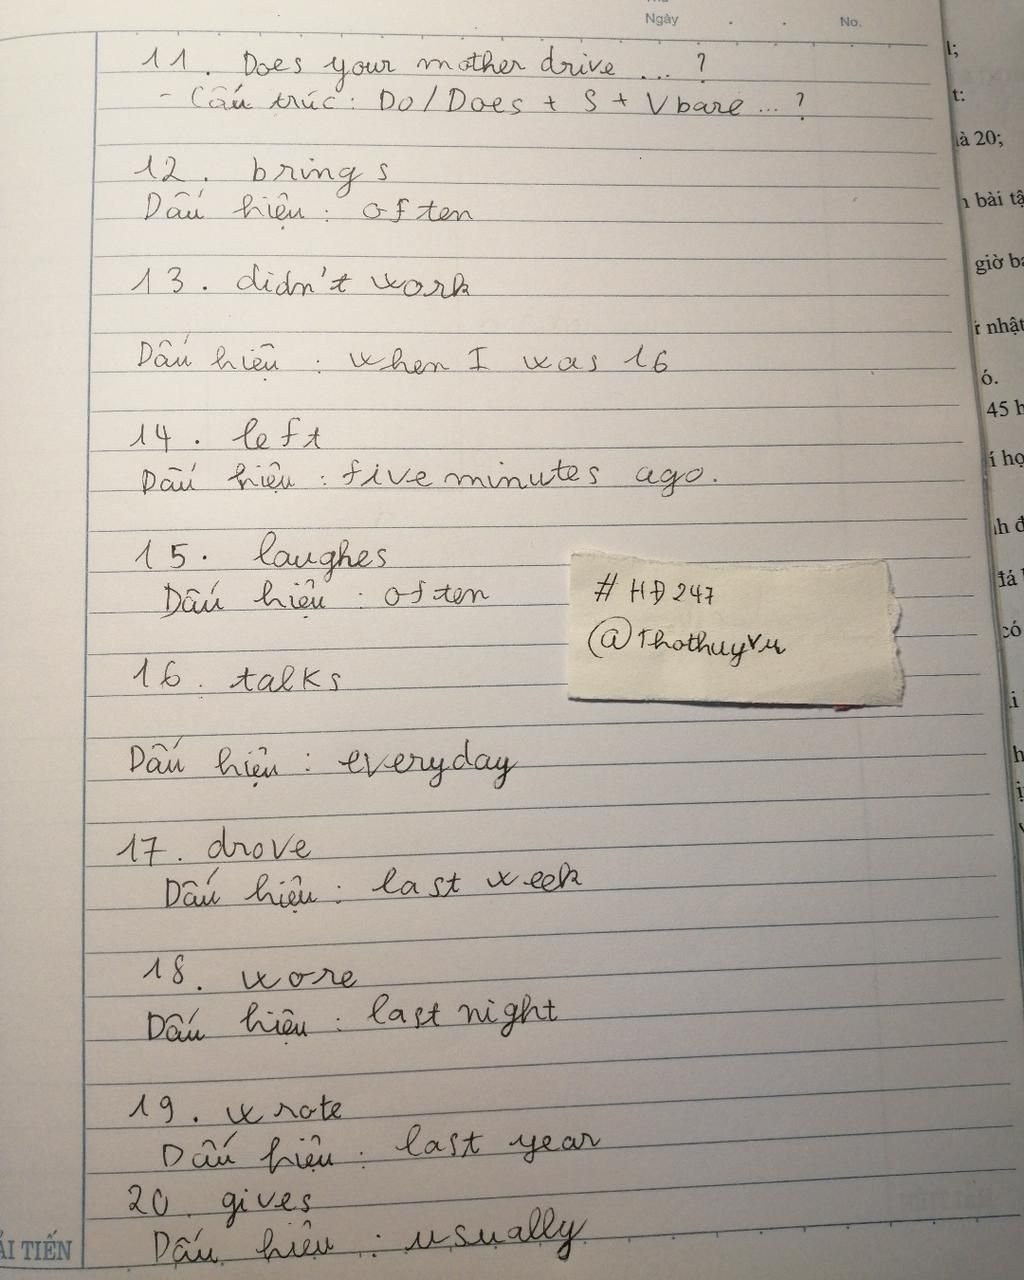 Ngày . . No.
11. Does your mother drive ... ?
- Cấu trúc: Do/Does + S + Vbare ... ?
12. brings
Dấu hiệu: often
13. didn't work
Dấu hiệu: when I was 16
14. left
Dấu hiệu: five minutes ago.
15. laughes
Dấu hiệu: often
# HĐ247
@Thothuyvu
16. talks
Dấu hiệu: everyday
17. drove
Dấu hiệu: last week
18. wore
Dấu hiệu: last night
19. wrote
Dấu hiệu: last year
20. gives
Dấu hiệu: usually
ẢI TIẾN
l;
t:
là 20;
bài tậ
giờ ba
nhật
ó.
45 h
í họ
h đ
đá
có